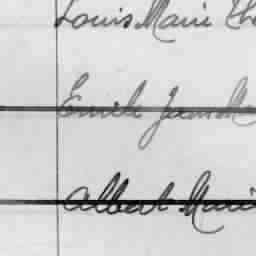 Louis Marie
Emile Jean M
Albert Mari